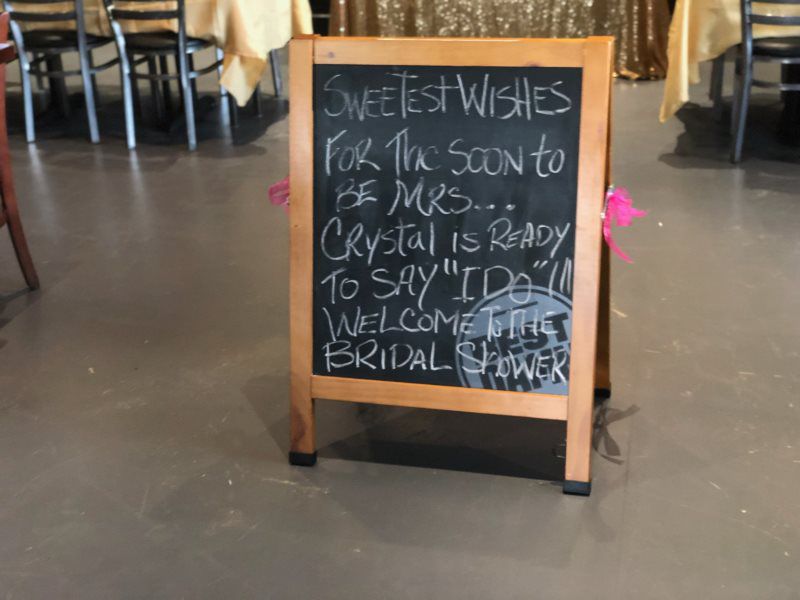 SWEETEST WISHES
FOR THE SOON to
BE MRS....
CRYStal is READY
TO SAY "I DO"!!!
WELCOME To THE
BRIDAL SHOWER